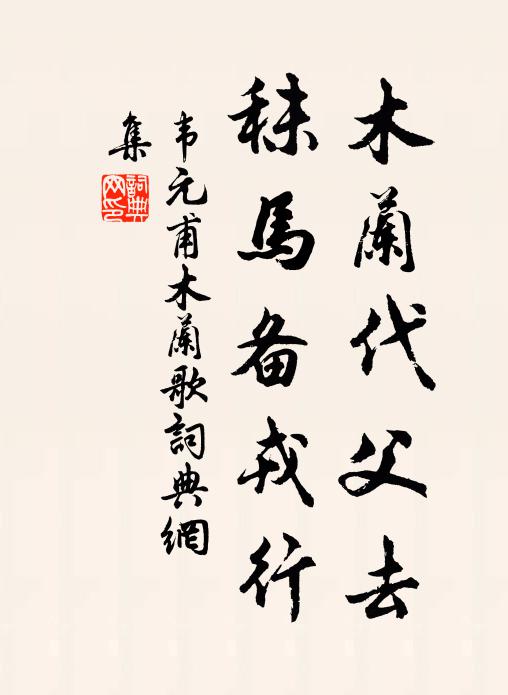 木蘭代父去
秣馬备戎行
韦元甫木蘭歌詞典網
集
詞典
网印